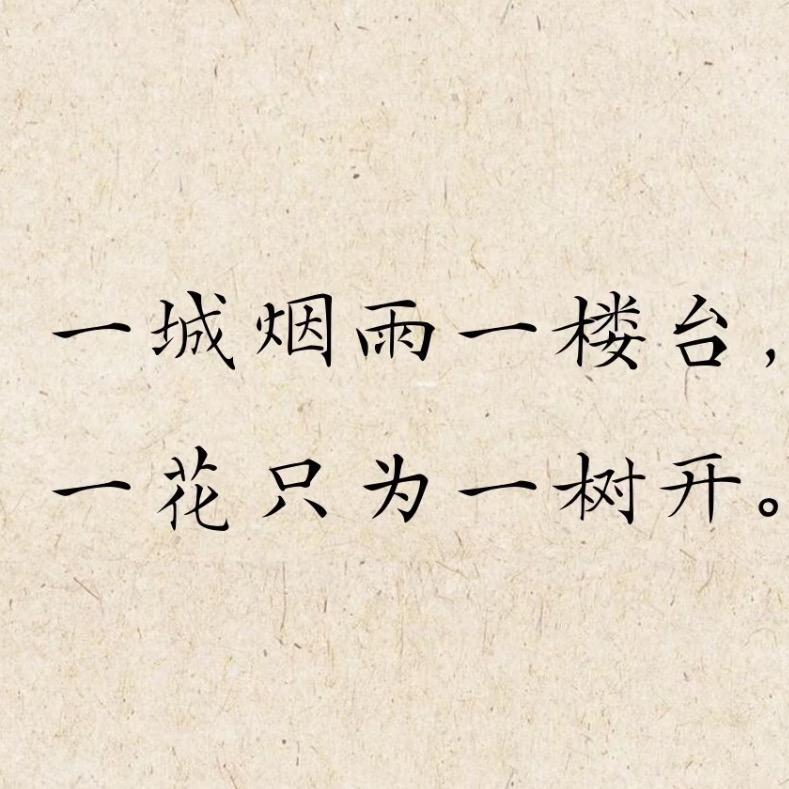 一城烟雨一楼台，
一花只为一树开。